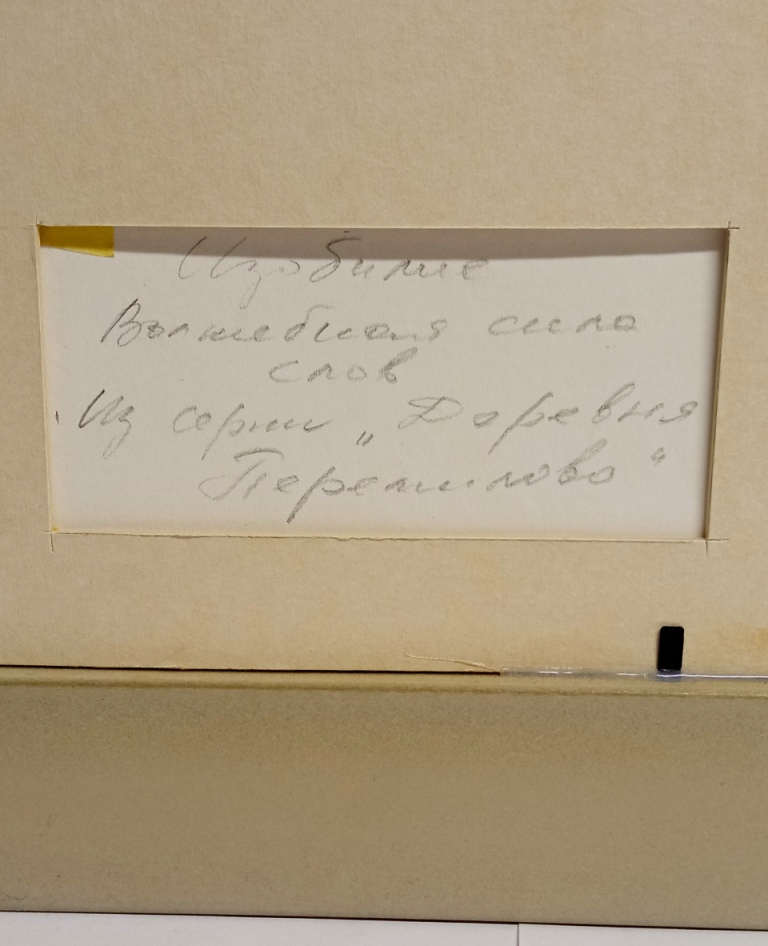 Изобилие
Волшебная сила
слов
Из серии „Деревня
Перемилово“